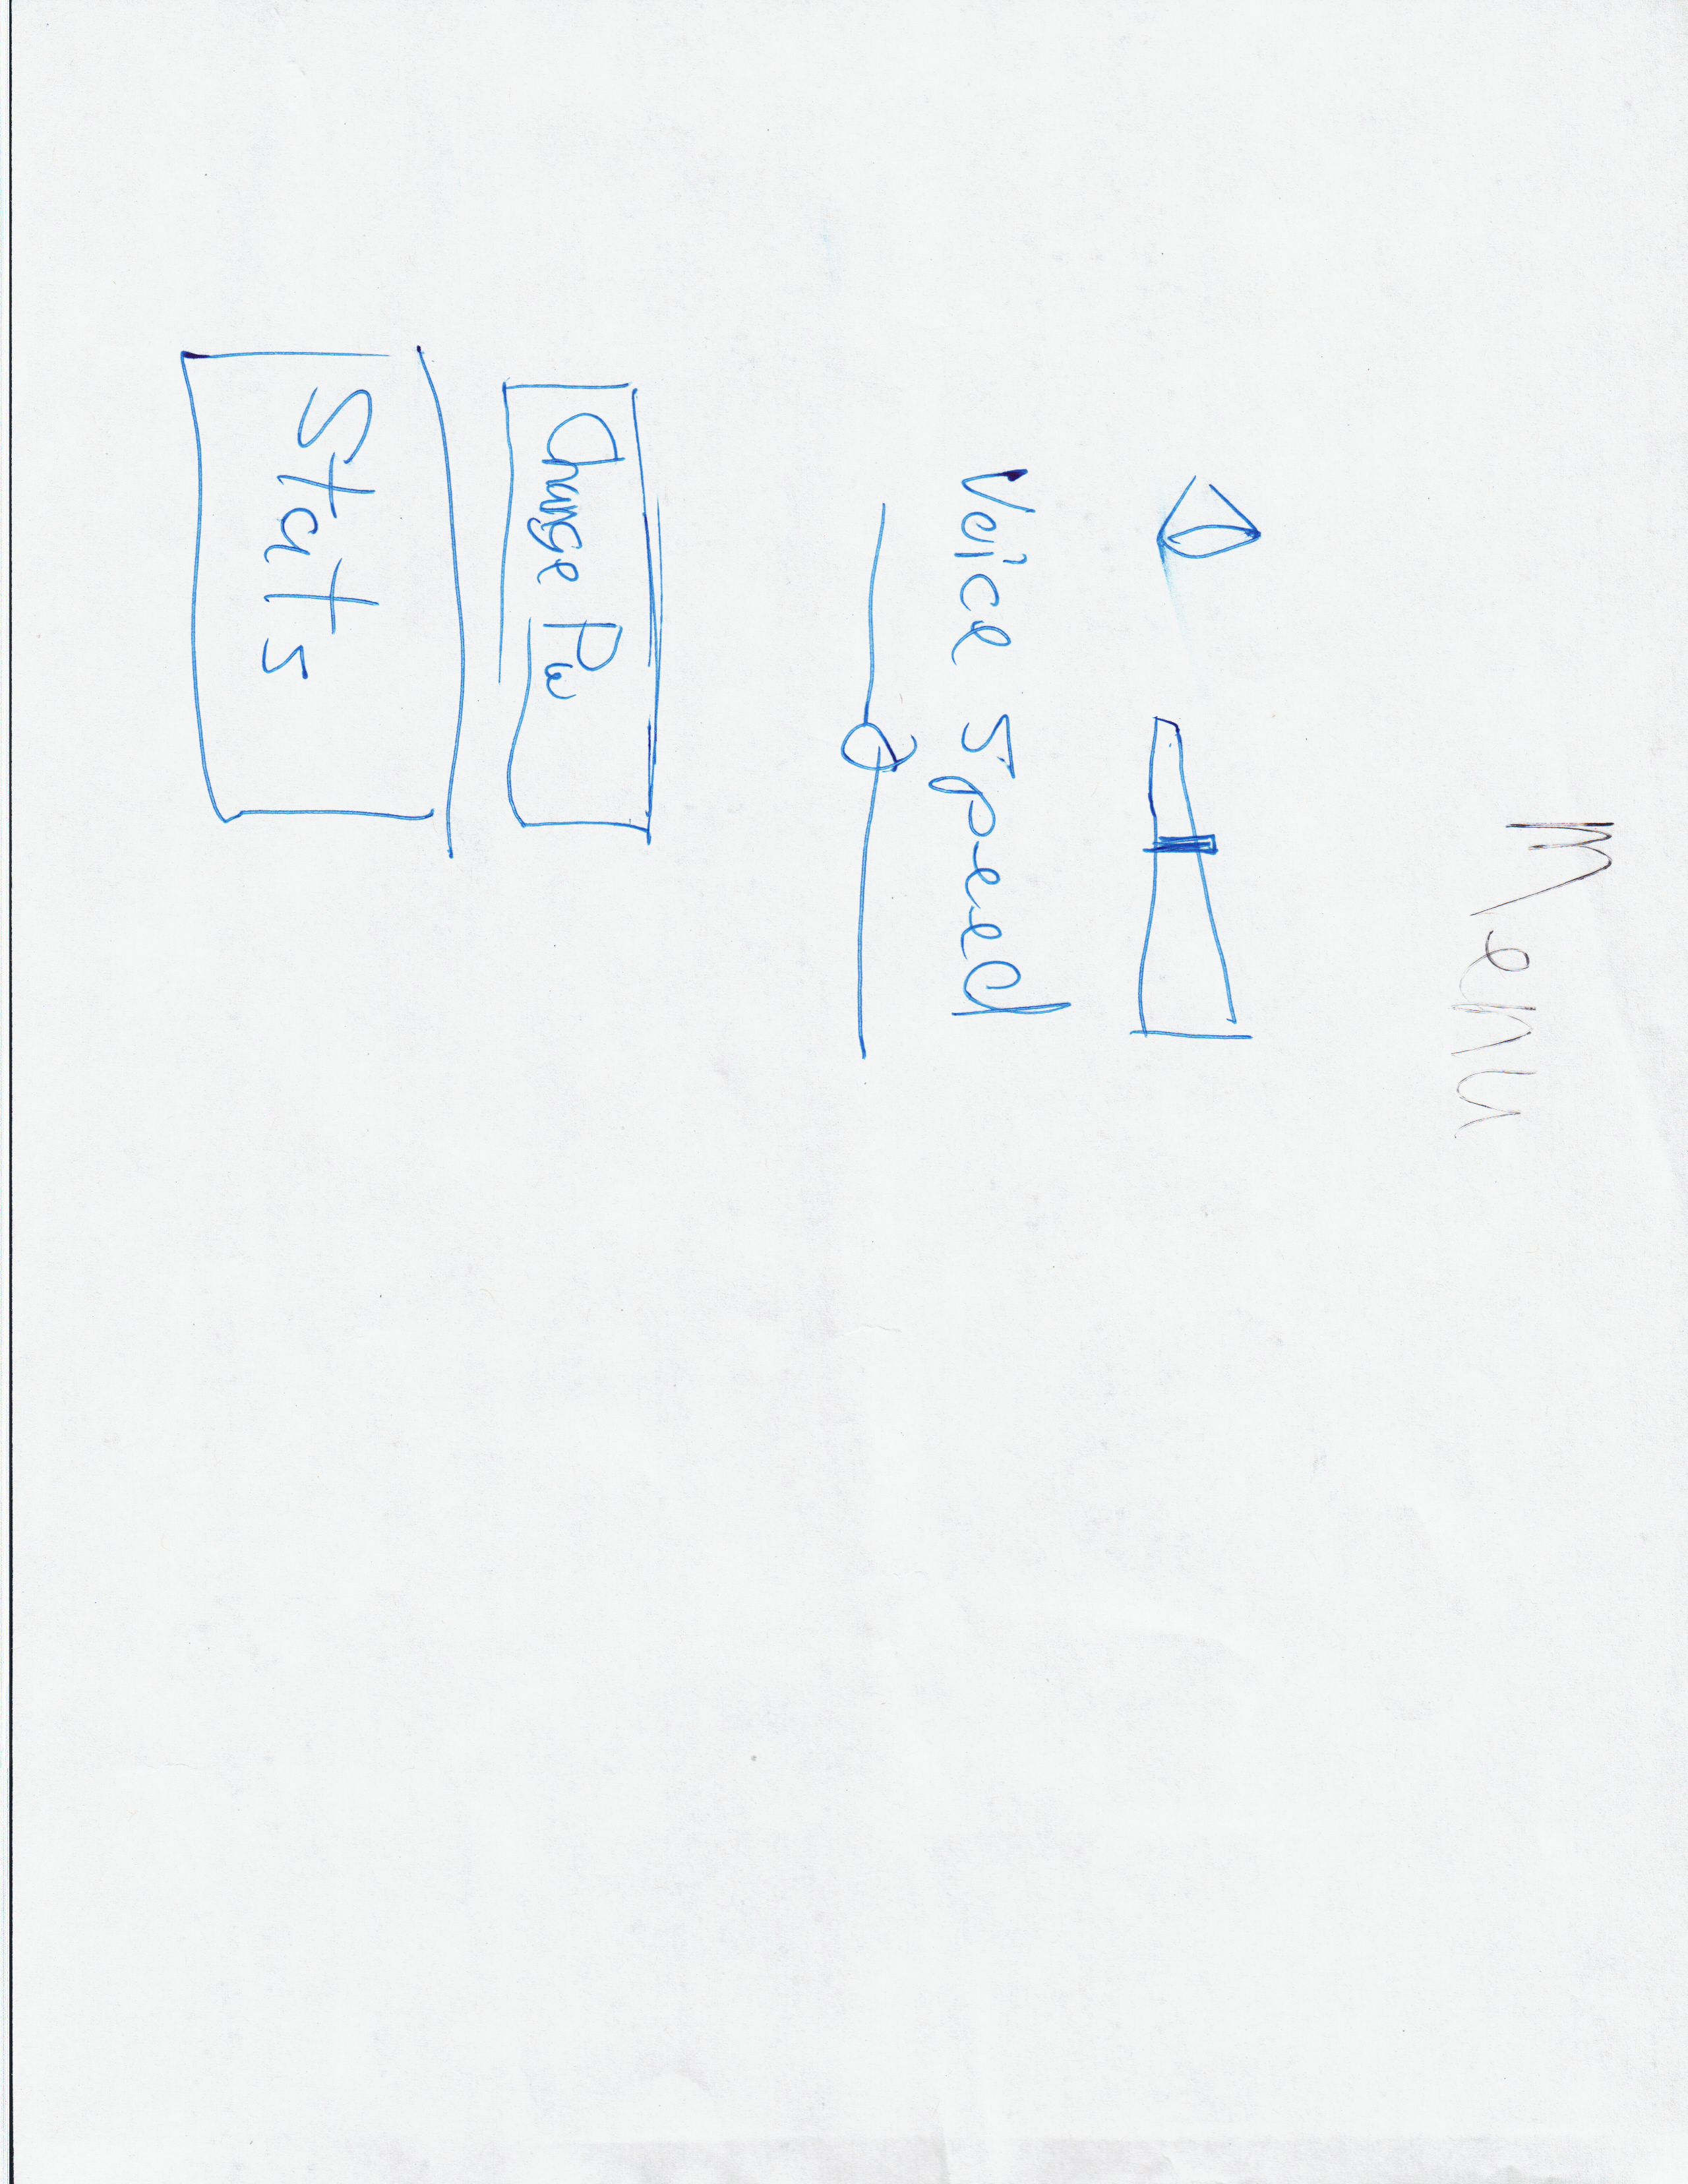 Menu
Voice Speed
Change Pw
Stats